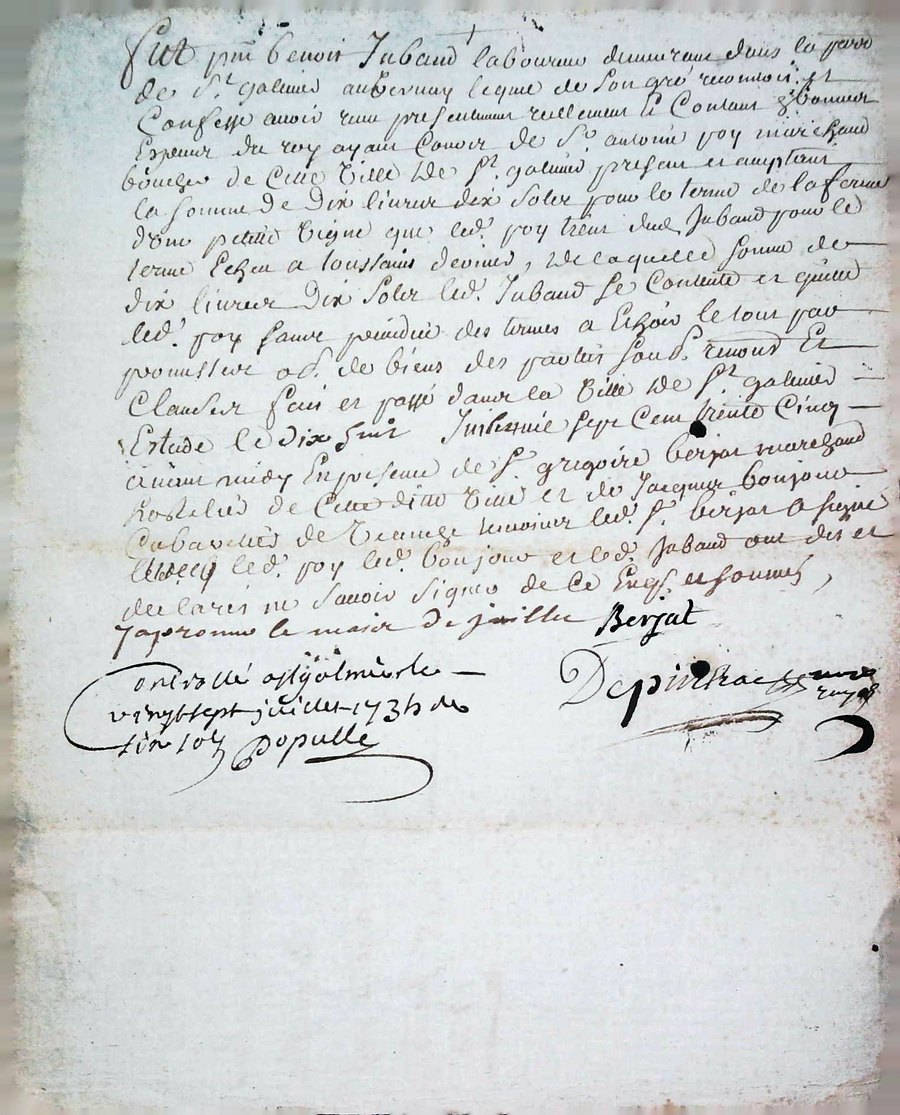 fut pnt benoit Jubaud laboureur demeurant dans la parr
de St galmier aubernay lequel de son gré reconnoit et
Confesse avoir reçu presentement reellement et Contant en bonnes
Especes du roy ayant Cours de Sr antoine foy marchand
boucher de Cette Ville de St galmier present et acceptant
la somme de dix livres dix Sols pour le terme de la ferme
d'une petite Vigne que led. foy tient dud. Jubaud pour le
terme Echeu a toussaint dernier, de laquelle somme de
dix livres dix Sols led. Jubaud se Contente et quitte
led. foy sans prejudice des termes a Echoir le tout par
promesses ob. de biens des parties soub. renond. Et
Clauses fait et passé dans la Ville de St galmier
Estude le dix huit Juil mil sept Cent trente Cinq
avant midy En presence de Sr grégoire berjat marchand
hostelier de Cette ditte Ville et de Jacques boujour
Cabaretier de temoins led. Sr berjat a signé
led. foy led. boujour et led. Jubaud ont dit et
declarés ne Savoir Signer de Ce Enqs et sommés,
J'aprouve le mois de juillet Berjat
Controllé a St Galmier le
vingt sept juillet 1735 de
six sols Populle
Depinhac nore
royal